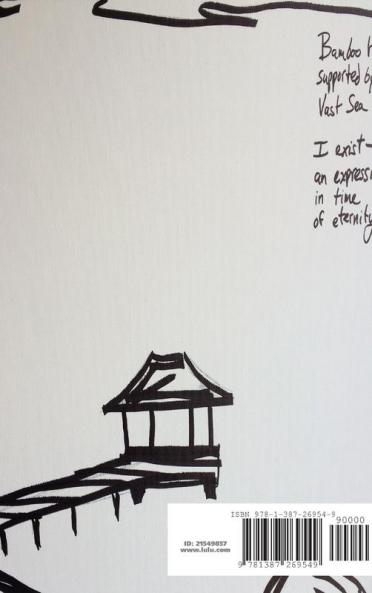 Bamboo
supported
Vast Sea
I exist-
an
in time
of eternity
ISBN 978-1-387-26954-9
90000
ID: 21549857
www.lulu.com
9 781387 269549